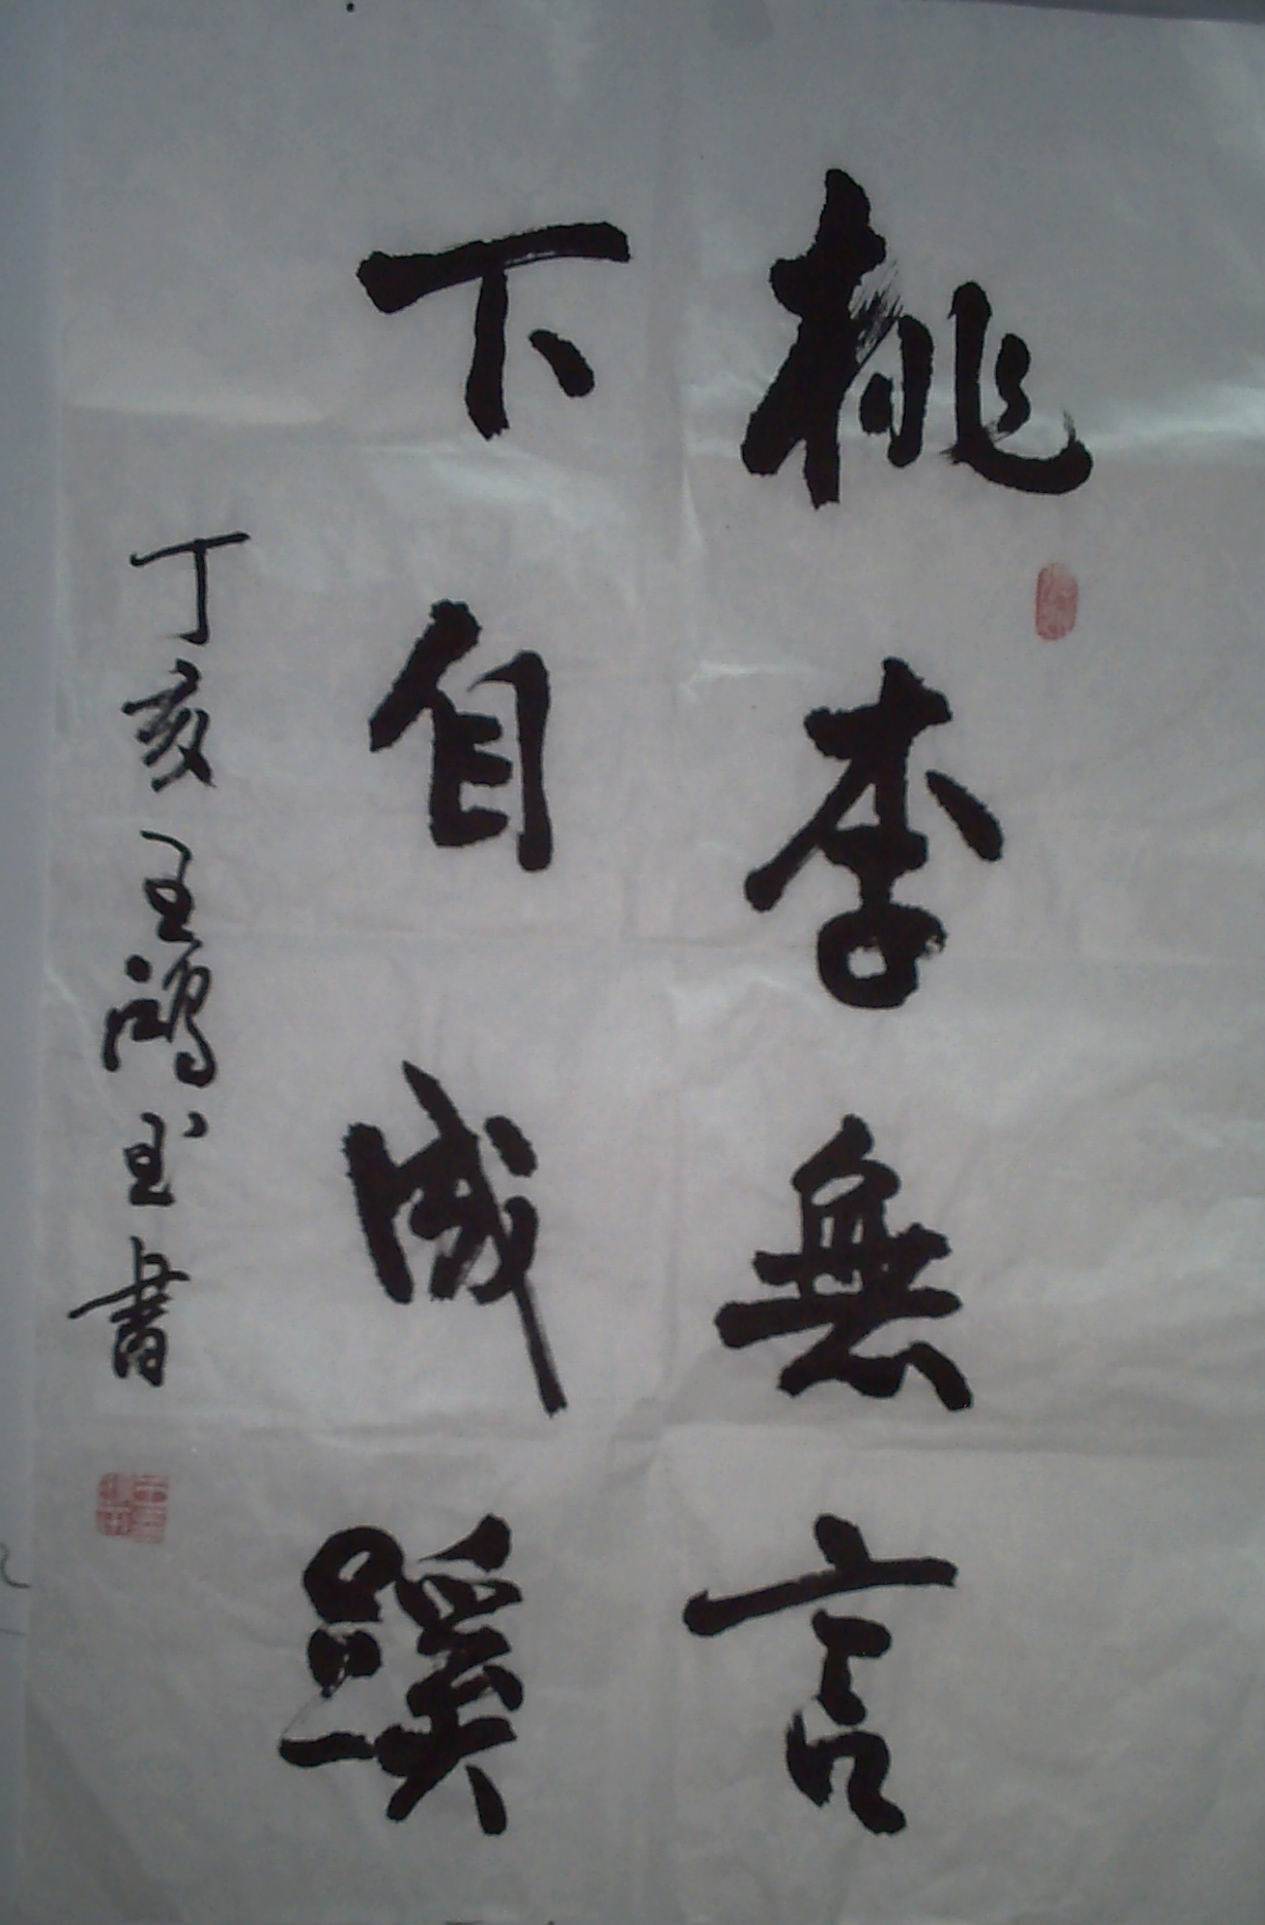 桃李無言
下自成蹊
丁亥王鴻玉書